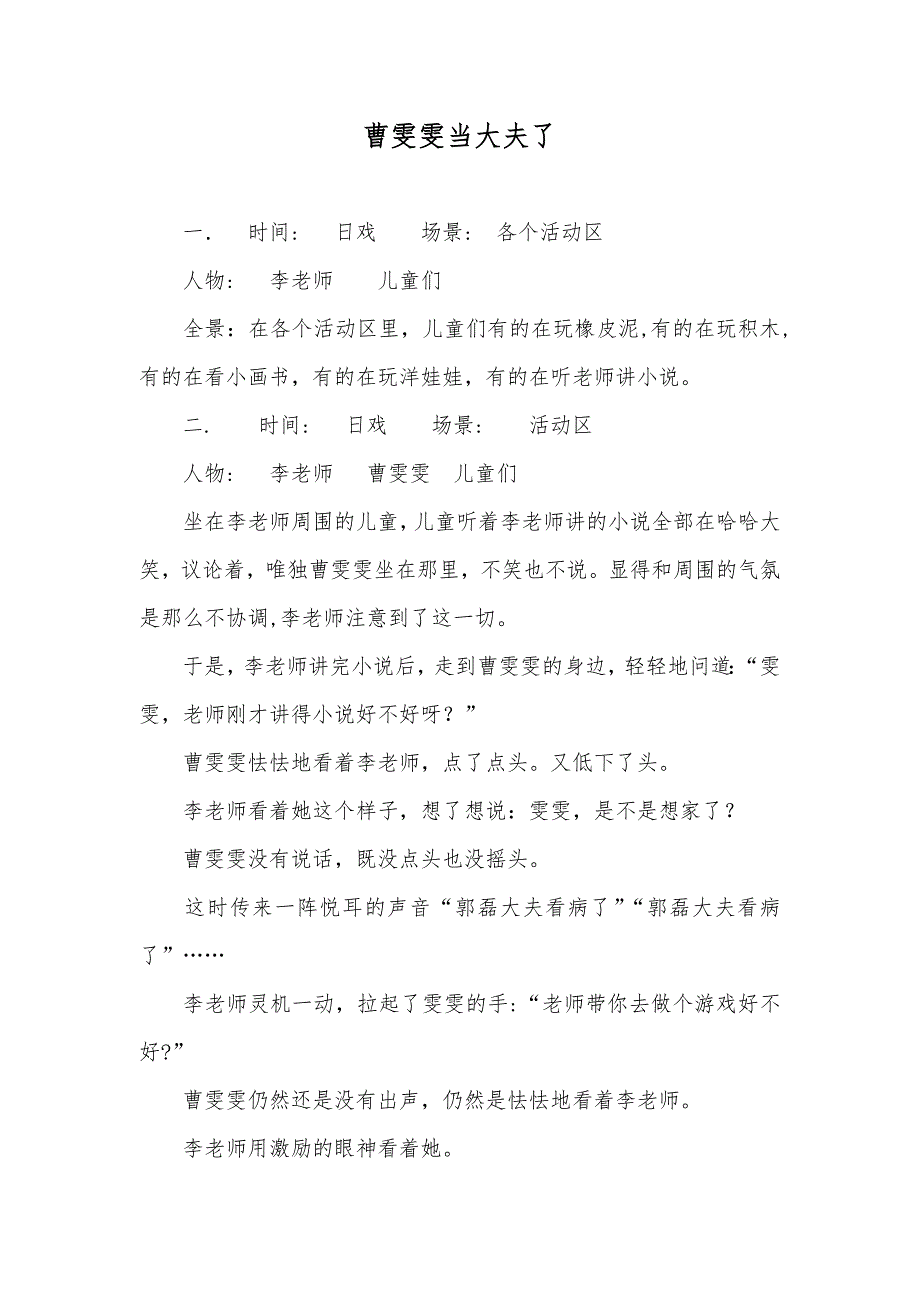 曹雯雯当大夫了
一． 时间： 日戏 场景： 各个活动区
人物： 李老师 儿童们
全景：在各个活动区里，儿童们有的在玩橡皮泥,有的在玩积木,
有的在看小画书，有的在玩洋娃娃，有的在听老师讲小说。
二． 时间： 日戏 场景： 活动区
人物： 李老师 曹雯雯 儿童们
坐在李老师周围的儿童，儿童听着李老师讲的小说全部在哈哈大
笑，议论着，唯独曹雯雯坐在那里，不笑也不说。显得和周围的气氛
是那么不协调,李老师注意到了这一切。
于是，李老师讲完小说后，走到曹雯雯的身边，轻轻地问道：“雯
雯，老师刚才讲得小说好不好呀？”
曹雯雯怯怯地看着李老师，点了点头。又低下了头。
李老师看着她这个样子，想了想说：雯雯，是不是想家了？
曹雯雯没有说话，既没点头也没摇头。
这时传来一阵悦耳的声音“郭磊大夫看病了”“郭磊大夫看病
了”……
李老师灵机一动，拉起了雯雯的手:“老师带你去做个游戏好不
好?”
曹雯雯仍然还是没有出声，仍然是怯怯地看着李老师。
李老师用激励的眼神看着她。